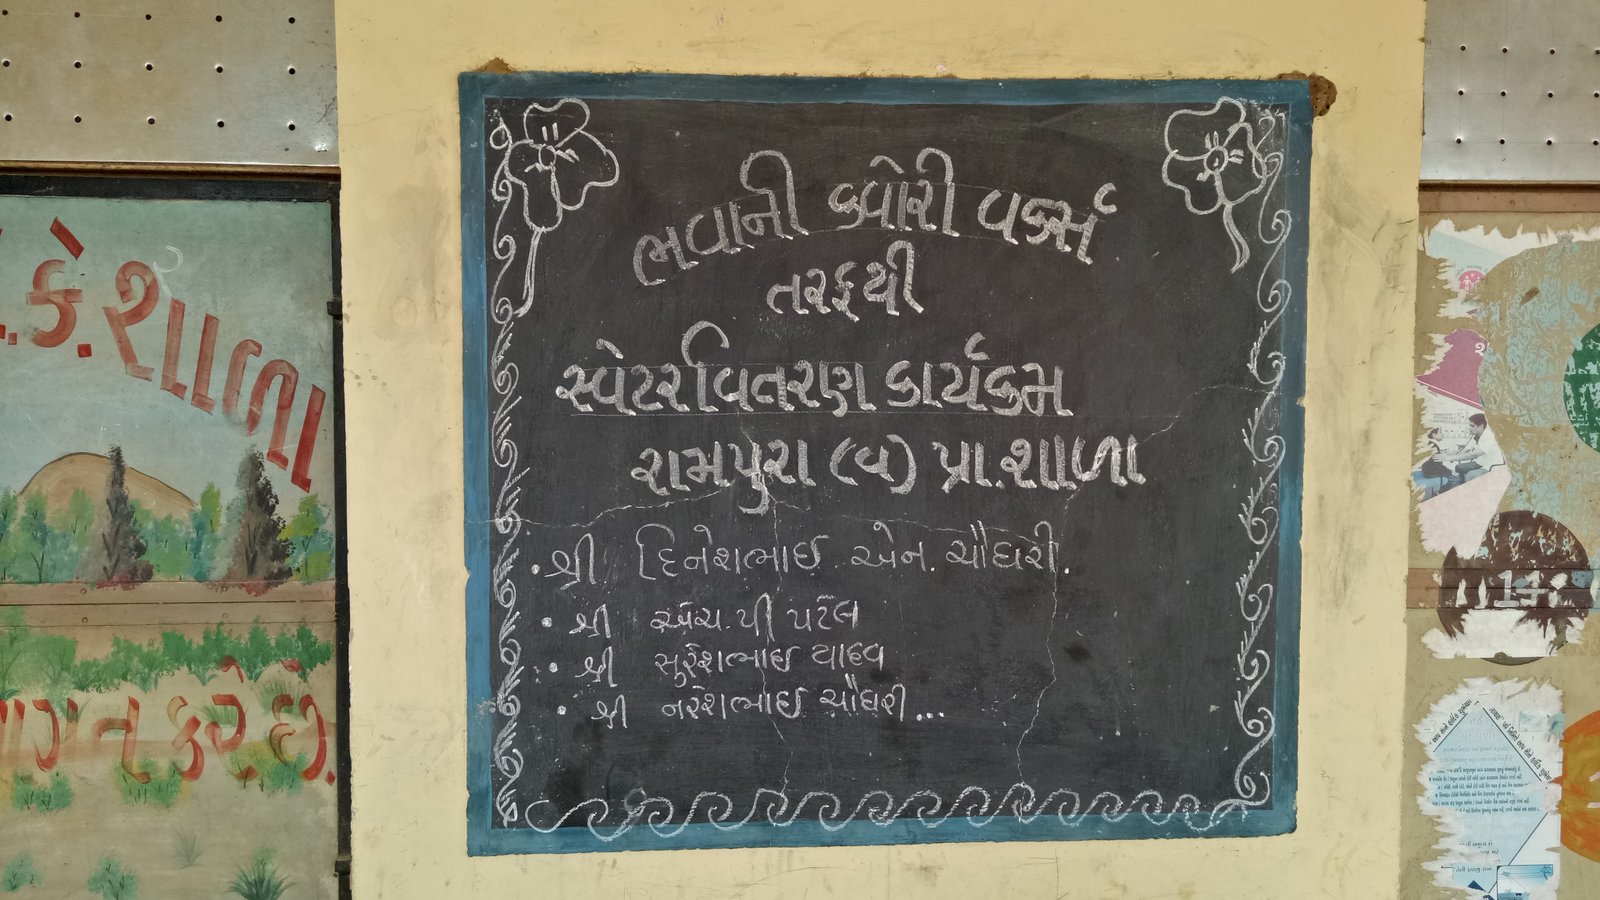 ભવાની ક્વોરી વર્ક્સ
તરફથી
સ્વેટરવિતરણ કાર્યક્રમ
રામપુરા (વ) પ્રા.શાળા
• શ્રી દિનેશભાઈ એન. ચૌધરી.
• શ્રી એચ. પી પટેલ
• શ્રી સુરેશભાઇ યાદવ
• શ્રી નરેશભાઈ ચૌધરી...
કે. શાળા
કરે છે.